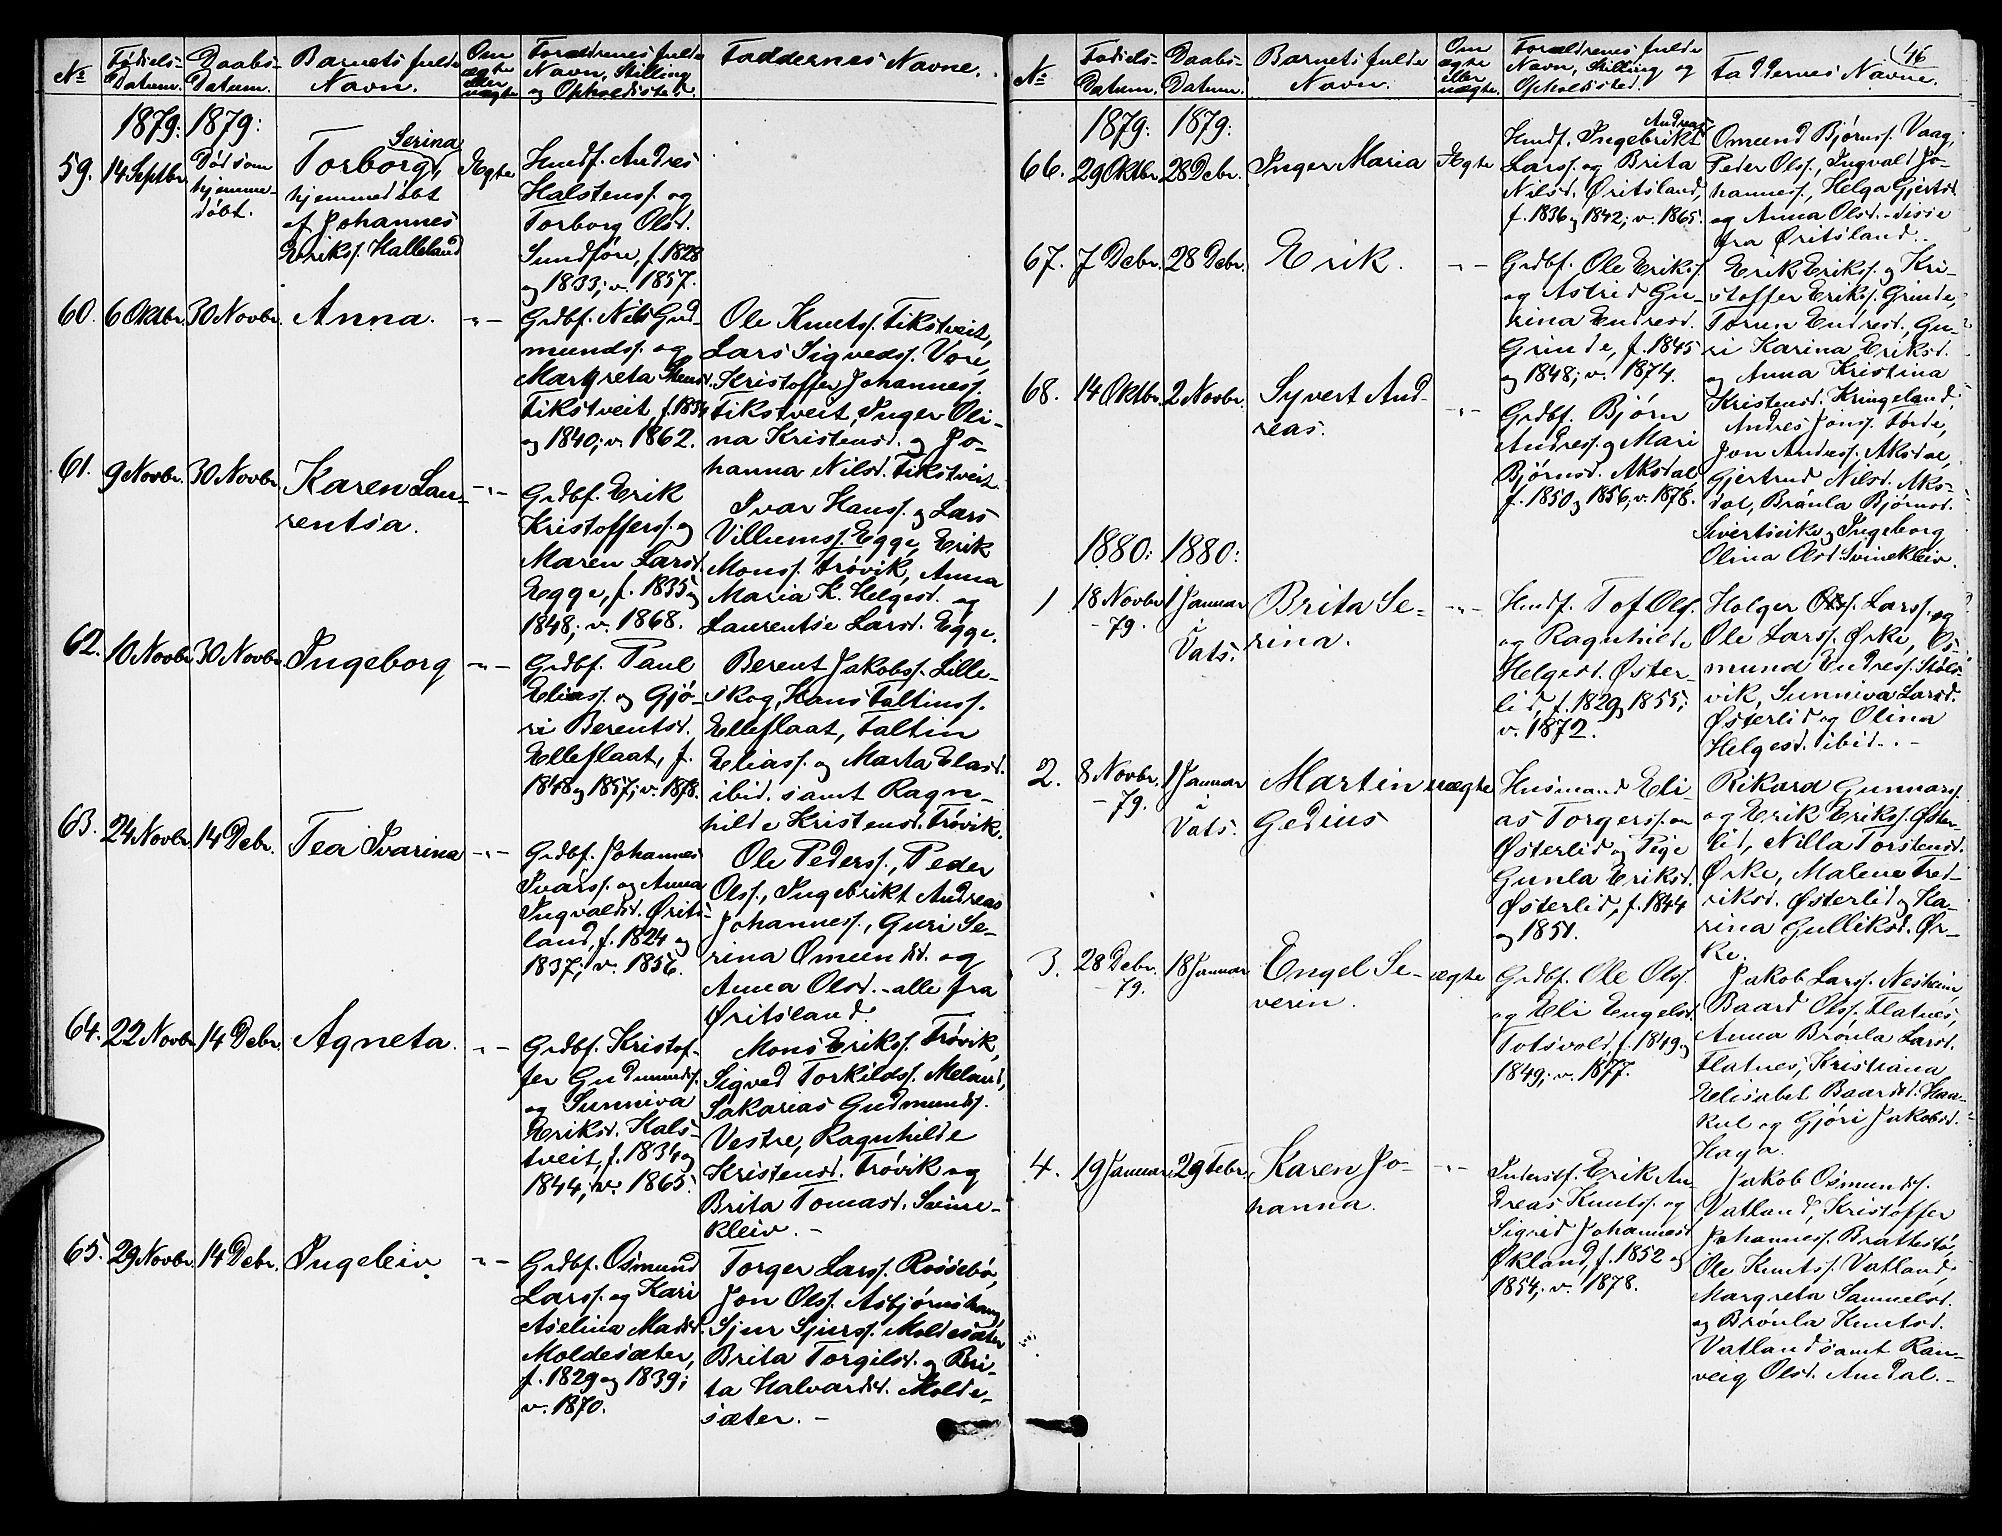 No
Fødsels-
Datum.
Daabs-
Datum.
Barnets fulde
Navn.
Om
ægte
eller
uægte
Forældrenes fulde
Navn, Stilling
og Opholdssted.
Faddernes Navne.
1879: 1879:
59. 14 Septbr.
Død som
hjemme-
døbt.
Serina
Torborg,
hjemmedøbt
af Johannes
Eriks. Halleland
Ægte
Husf. Andres
Halstenss. og
Torborg Olsd.
Sundføre, f. 1828
og 1833; v. 1857.
60. 6 Oktbr. 30 Novbr. Anna. -"-
Grdbf. Nils Gud-
mundss. og
Margreta
Tikstveit, f. 1834
og 1840; v. 1862.
Ole Knutss. Tikstveit,
Lars Sigvedss. Vore,
Kristoffer Johanness.
Tikstveit, Inger Oli-
na Kristensd. og Jo-
hanna Nilsd. Tikstveit.
61. 9 Novbr. 30 Novbr.
Karen Lau-
rentsa.
-"-
Grdbf. Erik
Kristofferss. og
Maren Larsd.
Egge, f. 1835 og
1848; v. 1868.
Ivar Hanss. og Lars
Villumss. Egge, Erik
Monss. Trøvik, Anna
Maria K. Helgesd. og
Laurentse Larsd. Egge.
62. 10 Novbr. 30 Novbr. Ingeborg -"-
Grdbf. Paul
Eliass. og Gjø-
ri Berentsd.
Elleflaat, f.
1848 og 1857; v. 1878.
Berent Jakobss. Lille-
skog, Hans Faltinss.
Elleflaat, Faltin
Eliass. og Marta Elasd.
ibid. samt Ragn-
hilde Kristensd. Trøvik.
63. 24 Novbr. 14 Debr. Tea Ivarina -"-
Grdbf. Johannes
Ivarss. og Anna
Ingvaldsd.Ørits-
land, f. 1824 og
1837; v. 1856.
Ole Pederss., Peder
Olss., Ingebrikt Andreas
Johanness., Guri Se-
rina Omundsd. og
Anna Olsd. - alle fra
Øritsland.
64. 22 Novbr. 14 Debr. Agneta. -"-
Grdbf. Kristof-
fer Gudmundss.
og Sunniva
Eriksd. Hals-
tveit, f. 1834 og
1844; v. 1865.
Mons Erikss. Trøvik,
Sigved Torkildss. Meland,
Sakarias Gudmundss.
Vestre, Ragnhilde
Kristensd. Trøvik og
Brita Tomasd. Svine-
kleiv. -
65. 29 Novbr. 14 Debr. Ingeleiv -"-
Grdbf. Osmund
Larss. og Kari
Aselina Madsd.
Moldesæter,
f. 1829 og 1839;
v. 1870.
Torger Larss. Røssebø,
Jon Olss. Asbjørnshaug,
Sjur Sjurss. Moldesæter
Brita Torgilsd. og Bri-
ta Halvardsd. Molde-
sæter. -
46
No
Fødsels-
Datum.
Daabs-
Datum.
Barnets fulde
Navn.
Om
ægte
eller
uægte.
Forældrenes fulde
Navn, Stilling og
Opholdssted.
Faddernes Navne.
1879: 1879:
66. 29 Oktbr. 28 Debr. Inger Maria Ægte
Andreas
Husf. Ingebrikt
Larss. og Brita
Nilsd. Øritsland,
f. 1836 og 1842; v. 1865.
Omund Bjørnss. Vaag,
Peder Olss., Ingvald Jo-
hanness., Helga Gjertsd.
og Anna Olsd. - disse
fra Øritsland.
67. 7 Debr. 28 Debr. Erik. -"-
Grdbf. Ole Erikss.
og Astrid Gu-
rina Endresd.
Grinde, f. 1845
og 1848; v. 1874.
Erik Erikss. og Kri-
stoffer Erikss. Grinde,
Torun Endresd., Gu-
ri Karina Eriksd.
og Anna Kristina
Kristensd. Kringeland.
68. 14 Oktbr. 2 Novbr.
Syvert And-
reas.
-"-
Grdbf. Bjørn
Andress. og Mari
Bjørnsd. Aksdal
f. 1850 og 1856, v. 1878.
Andres Jonss. Førde,
Jon Andress. Aksdal,
Gjertrud Nilsd. Aks-
dal, Brønla Bjørnsd.
Sivertsvik og Ingeborg
Olina Olsd. Svinekleiv.
1880: 1880:
1 18 Novbr.
- 79.
1 Januar
i
Vats.
Brita Se-
rina.
-"-
Husf. Tof Olss.
og Ragnhilde
Helgesd. Øster-
lid, f. 1829 og 1855;
v. 1872.
Holger Larss. og
Ole Larss. Ørke, Os-
mund Endress. Støls-
vik, Sunniva Larsd.
Østerlid og Olina
Helgesd. ibid. -
2. 8 Novbr.
- 79.
1 Januar
i
Vats.
Martin
Gedius
uægte
Husmand Eli-
as Torgerss. en
Østerlid og Pige
Gunla Eriksd.
Østerlid, f. 1844
og 1851.
Rikard Gunnarss.
og Erik Erikss. Øster-
lid, Nilla Torstensd.
Ørke, Malene Fred-
riksd. Østerlid og Ka-
rina Gulliksd. Ør-
ke.
3. 28 Debr.
- 79.
18 Januar
Engel Se-
verin.
ægte
Grdbf. Ole Olss.
og Eli Engelsd.
Totsvold, f. 1849 og
1849; v. 1877.
Jakob Larss. Nesheim,
Baard Olss. Flatnes,
Anna Brønla Larsd.
Flatnes, Kristiana
Elisabet Baardsd. Hau-
kul og Gjøri Jakobsd.
Haga.
4. 19 Januar. 29 Febr.
Karen Jo-
hanna.
-"-
Inderstf. Erik An-
dreas Knutss. og
Sigrid Johannesd.
Økland, f. 1852 og
1854; v. 1878.
Jakob Osmundss.
Vatland, Kristoffer
Johanness. Brattestø,
Ole Knutss. Vatland,
Margreta Samuelsd.
og Brønla Knutsd.
Vatland samt Ran-
veig Olsd. Amdal. -